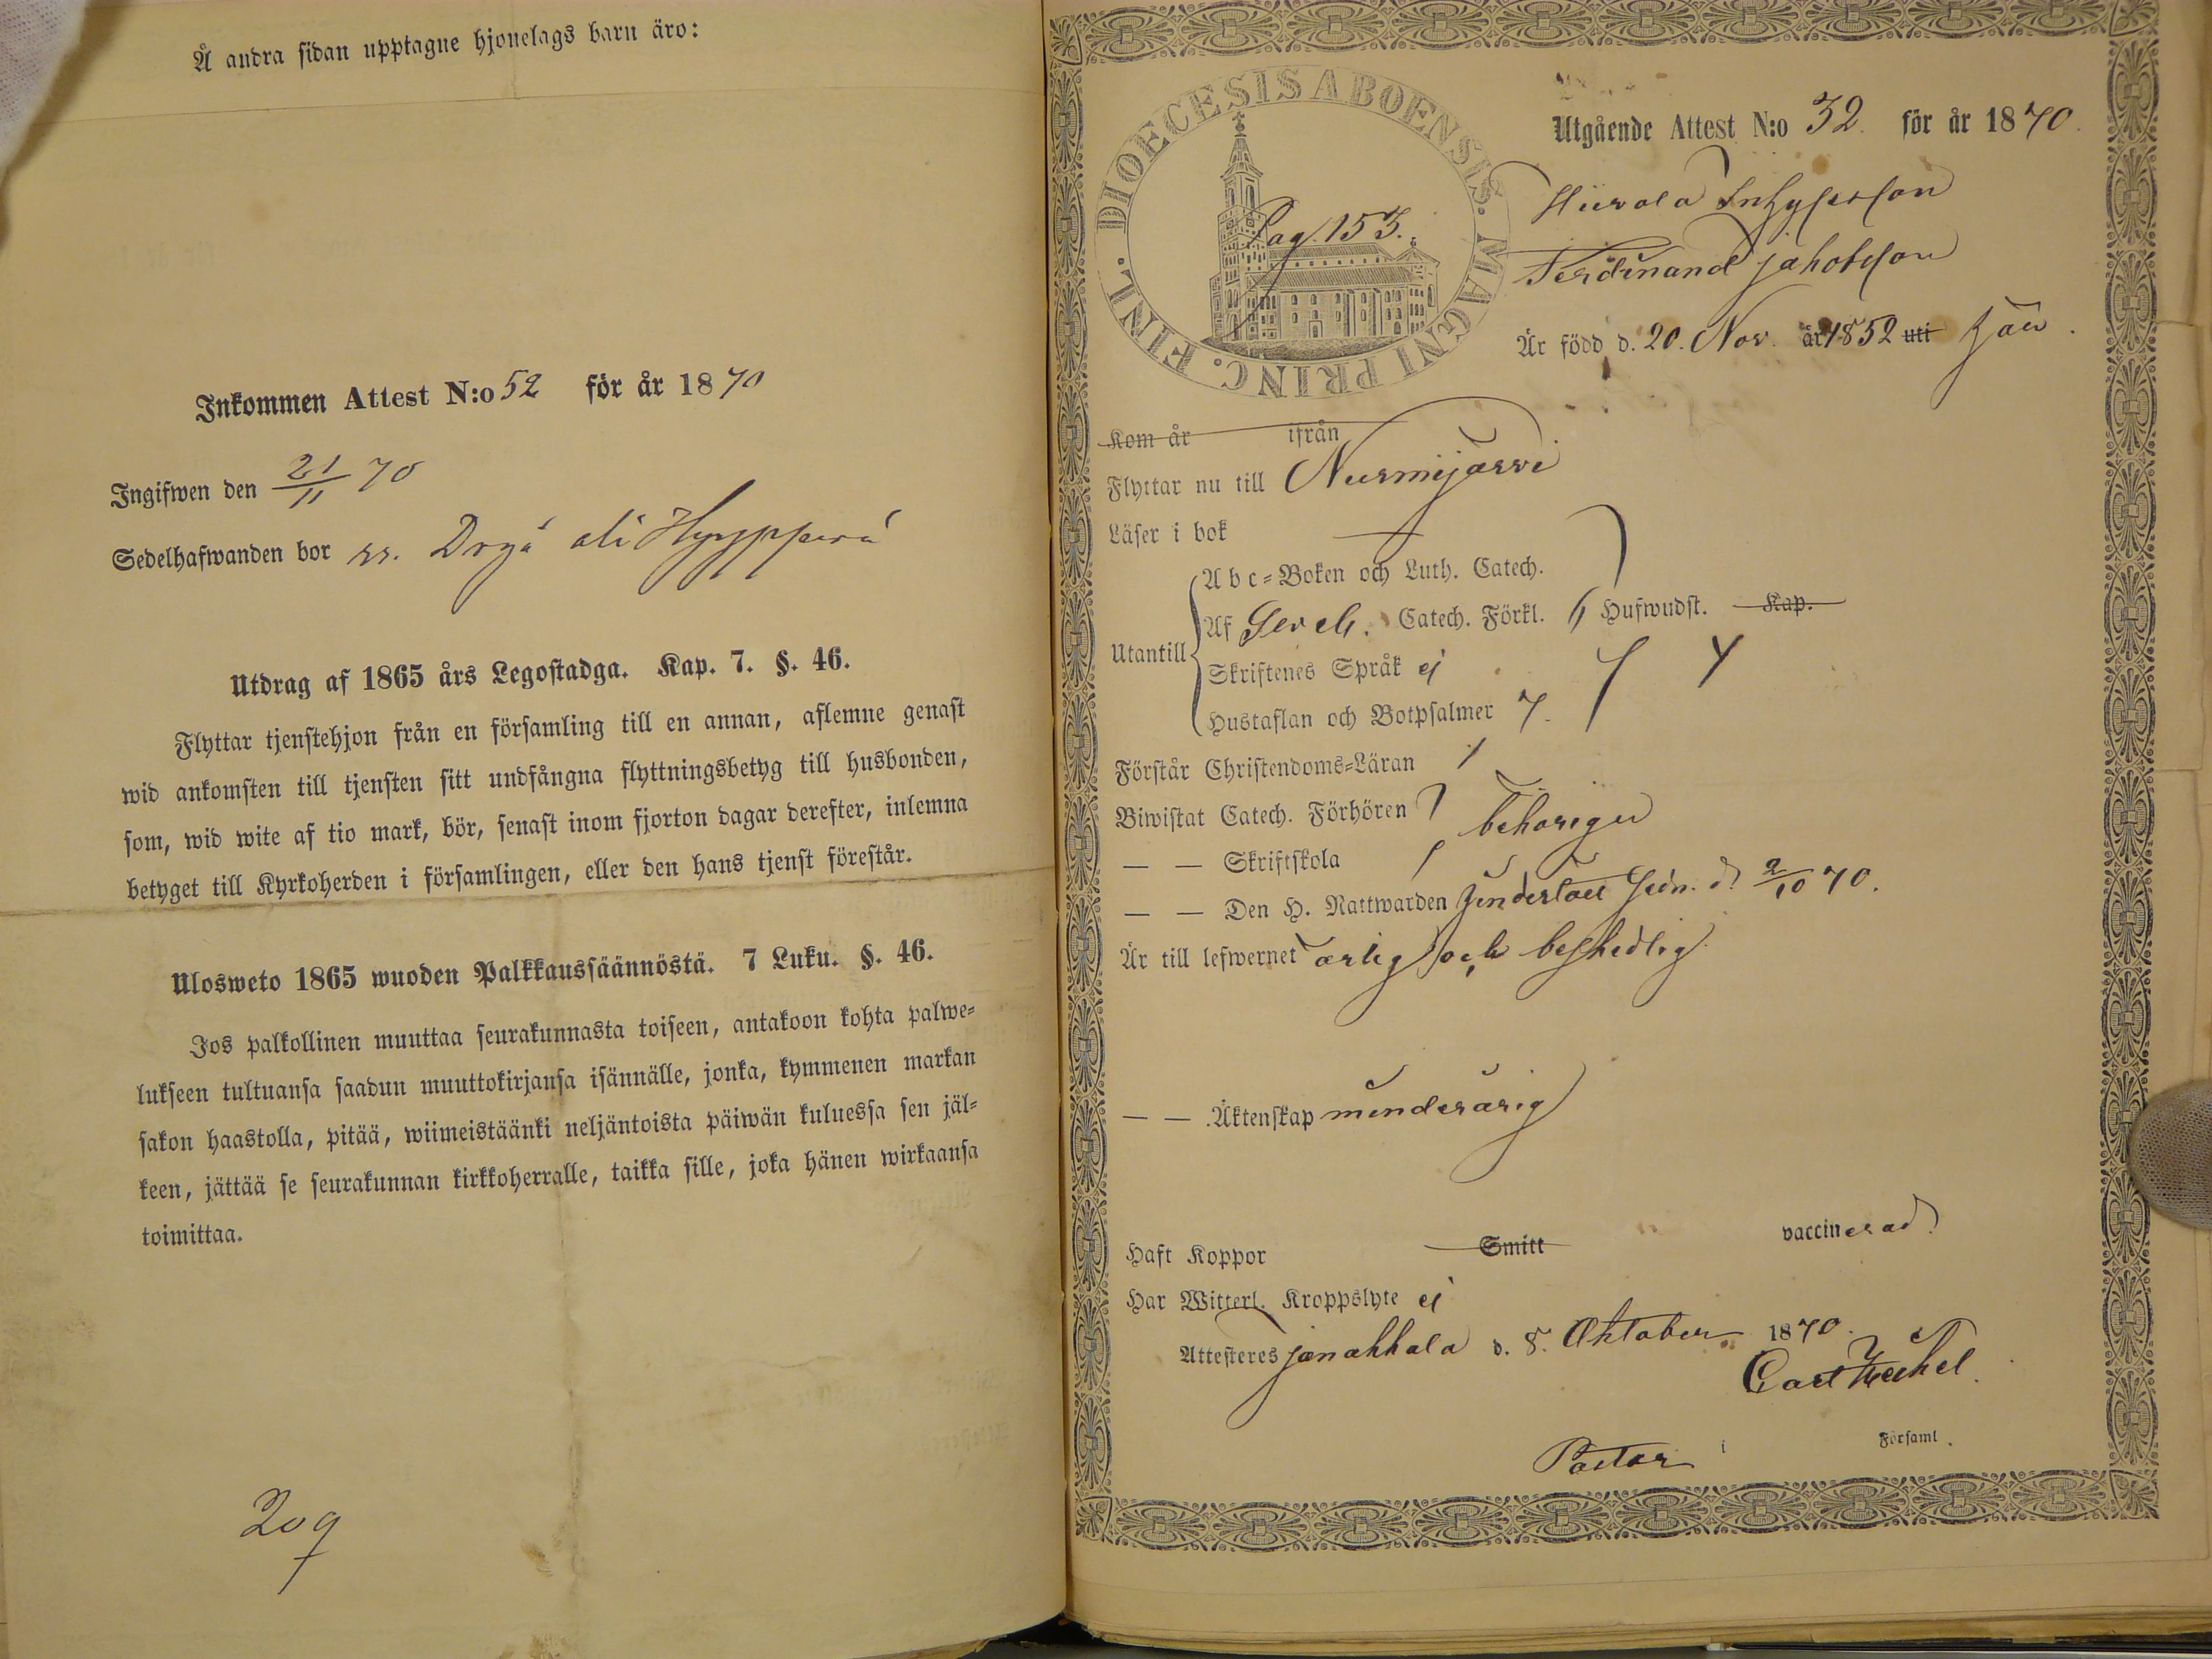 Å andra sidan upptagne hjonelags barn äro:
Inkommen Attest N:o 52 för år 1870
Ingifwen den 21/11 70
Sedelhafwanden bor
Utdrag af 1865 års Legostadga. Kap. 7. §. 46.
Flyttar tjenstehjon från en församling till en annan, aflemne genast
wid ankomsten till tjensten sitt undfångna flyttningsbetyg till husbonden,
som, wid wite af tio mark, bör, senast inom fjorton dagar derefter, inlemna
betyget till Kyrkoherden i församlingen, eller den hans tjenst förestår.
Ulosweto 1865 wuoden Palkkaussäännöstä. 7 Luku. §. 46.
Jos palkollinen muuttaa seurakunnasta toiseen, antakoon kohta palwe=
lukseen tultuansa saadun muuttokirjansa isännälle, jonka, kymmenen markan
sakon haastolla, pitää, wiimeistäänki neljäntoista päiwän kuluessa sen jäl=
keen, jättää se seurakunnan kirkkoherralle, taikka sille, joka hänen wirkaansa
toimittaa.
209
DIOECESIS ABOENSIS. MAGNI PRINC. FINL.
Pag. 153.
Utgående Attest N:o 32. för år 1870.
Ferdinand Jakobsson
Är född d. 20. Nov. år 1852 uti
Kom år ifrån
Flyttar nu till Nurmijärvi
Läser i bok
Utantill
Abc=Boken och Luth. Catech.
Af Catech. Förkl. 6 Hufwudst. Kap.
Skriftenes Språk ej
Hustaflan och Botpsalmer 7.
Förstår Christendoms=Läran
Biwistat Catech. Förhören
behörigen
— — Skriftskola
— — Den H. Nattwarden d. 2/10 70.
Är till lefwernet ärlig och beskedlig
— — Äktenskap minderårig
Haft Koppor Smitt vaccinerad
Har Witterl. Kroppslyte ej
Attesteres Janakkala d. 8. Oktober 1870.
Pastor i Församl.